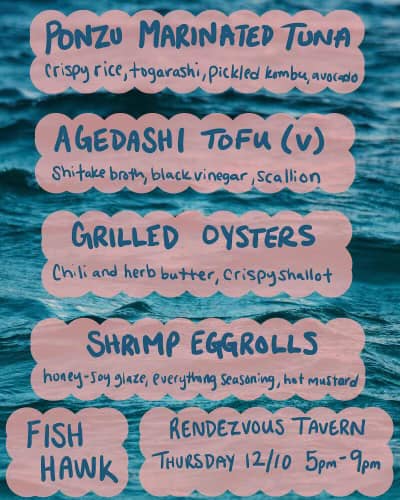 PONZU MARINATED TUNA
crispy rice, togarashi, pickled kombu, avocado
AGEDASHI TOFU (V)
Shitake broth, black vinegar, scallion
GRILLED OYSTERS
Chili and herb butter, crispy shallot
SHRIMP EGGROLLS
honey-soy glaze, everything seasoning, hot mustard
FISH
HAWK
RENDEZVOUS TAVERN
THURSDAY 12/10 5pm-9pm